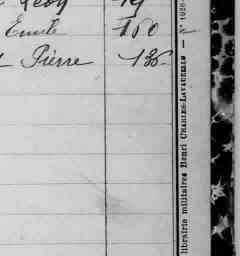 Léon 19
Emile 150
Pierre 136
librairie militaires Henri CHARLES-LAVAUZELLE — N°